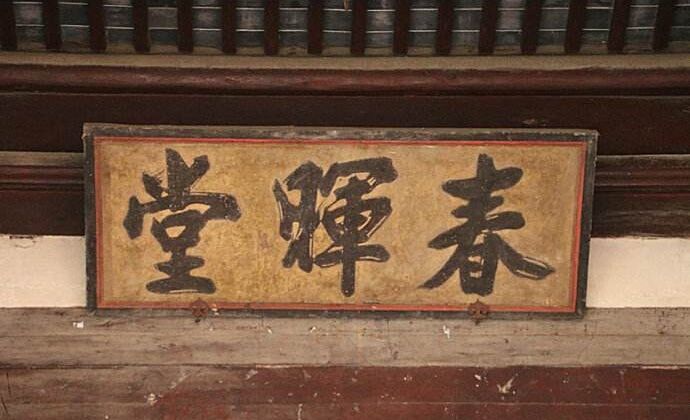 春暉堂